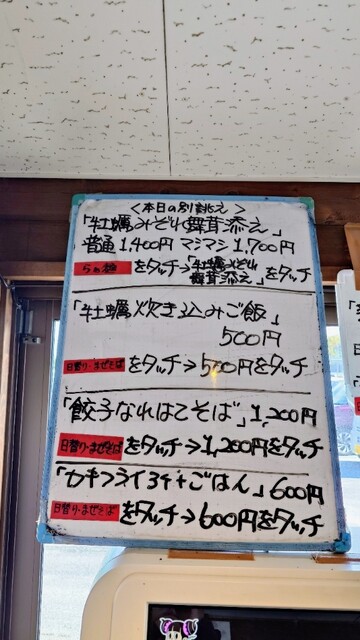 <本日の別誂え>
「牡蠣みぞれ舞茸添え」
普通1,400円 マシマシ1,700円
らぁ麺をタッチ→「牡蠣みぞれ舞茸添え」をタッチ
「牡蠣炊き込みご飯」
500円
日替り・まぜそばをタッチ→500円をタッチ
「餃子なれはてそば」1,200円
日替り・まぜそばをタッチ→1,200円をタッチ
「カキフライ3ケ+ごはん」600円
日替り・まぜそばをタッチ→600円をタッチ